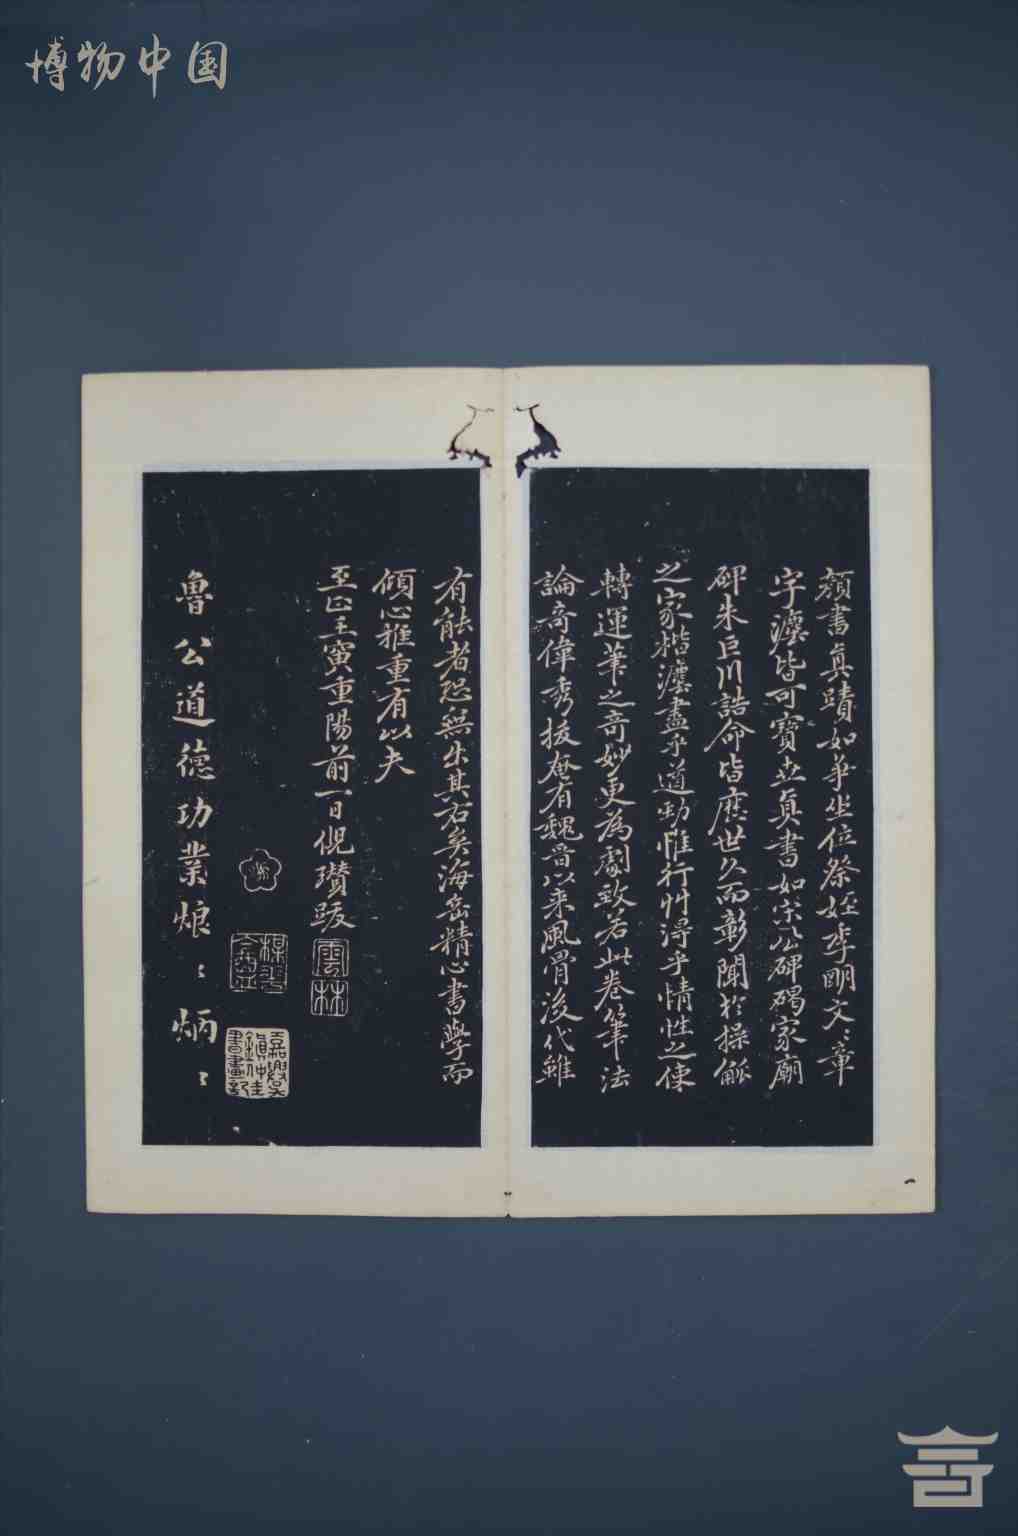 博物中国
顏書真蹟如爭坐位祭姪季明文〻章
字灋皆可寶也真書如宋公碑碣家廟
碑朱巨川誥命皆歷世久而彰聞於操觚
之家楷灋盡乎遒勁惟行艸得乎情性之使
轉運筆之奇妙更為劇致若此卷筆法
論奇偉秀拔奄有魏晉以来風骨後代雖
有能者恐無出其右矣海岳精心書學而
傾心推重有以夫
至正壬寅重陽前一日倪瓚跋
雲林
魯公道德功業烺〻炳〻